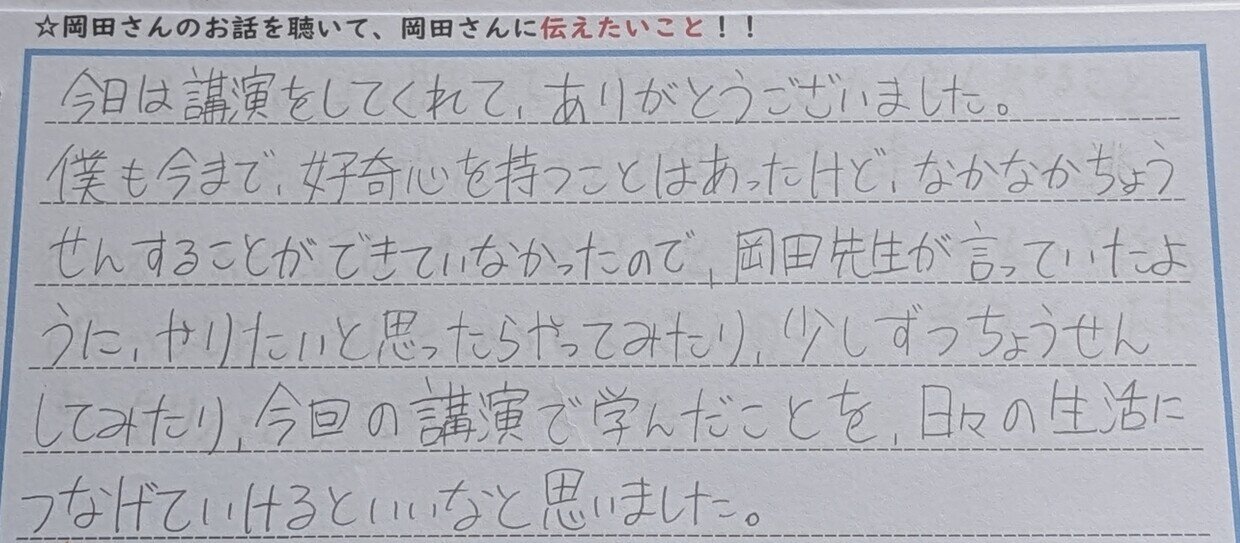 ☆岡田さんのお話を聴いて、岡田さんに伝えたいこと！！
今日は講演をしてくれて、ありがとうございました。
僕も今まで、好奇心を持つことはあったけど、なかなかちょう
せんすることができていなかったので、岡田先生が言っていたよ
うに、やりたいと思ったらやってみたり、少しずつちょうせん
してみたり、今回の講演で学んだことを、日々の生活に
つなげていけるといいなと思いました。